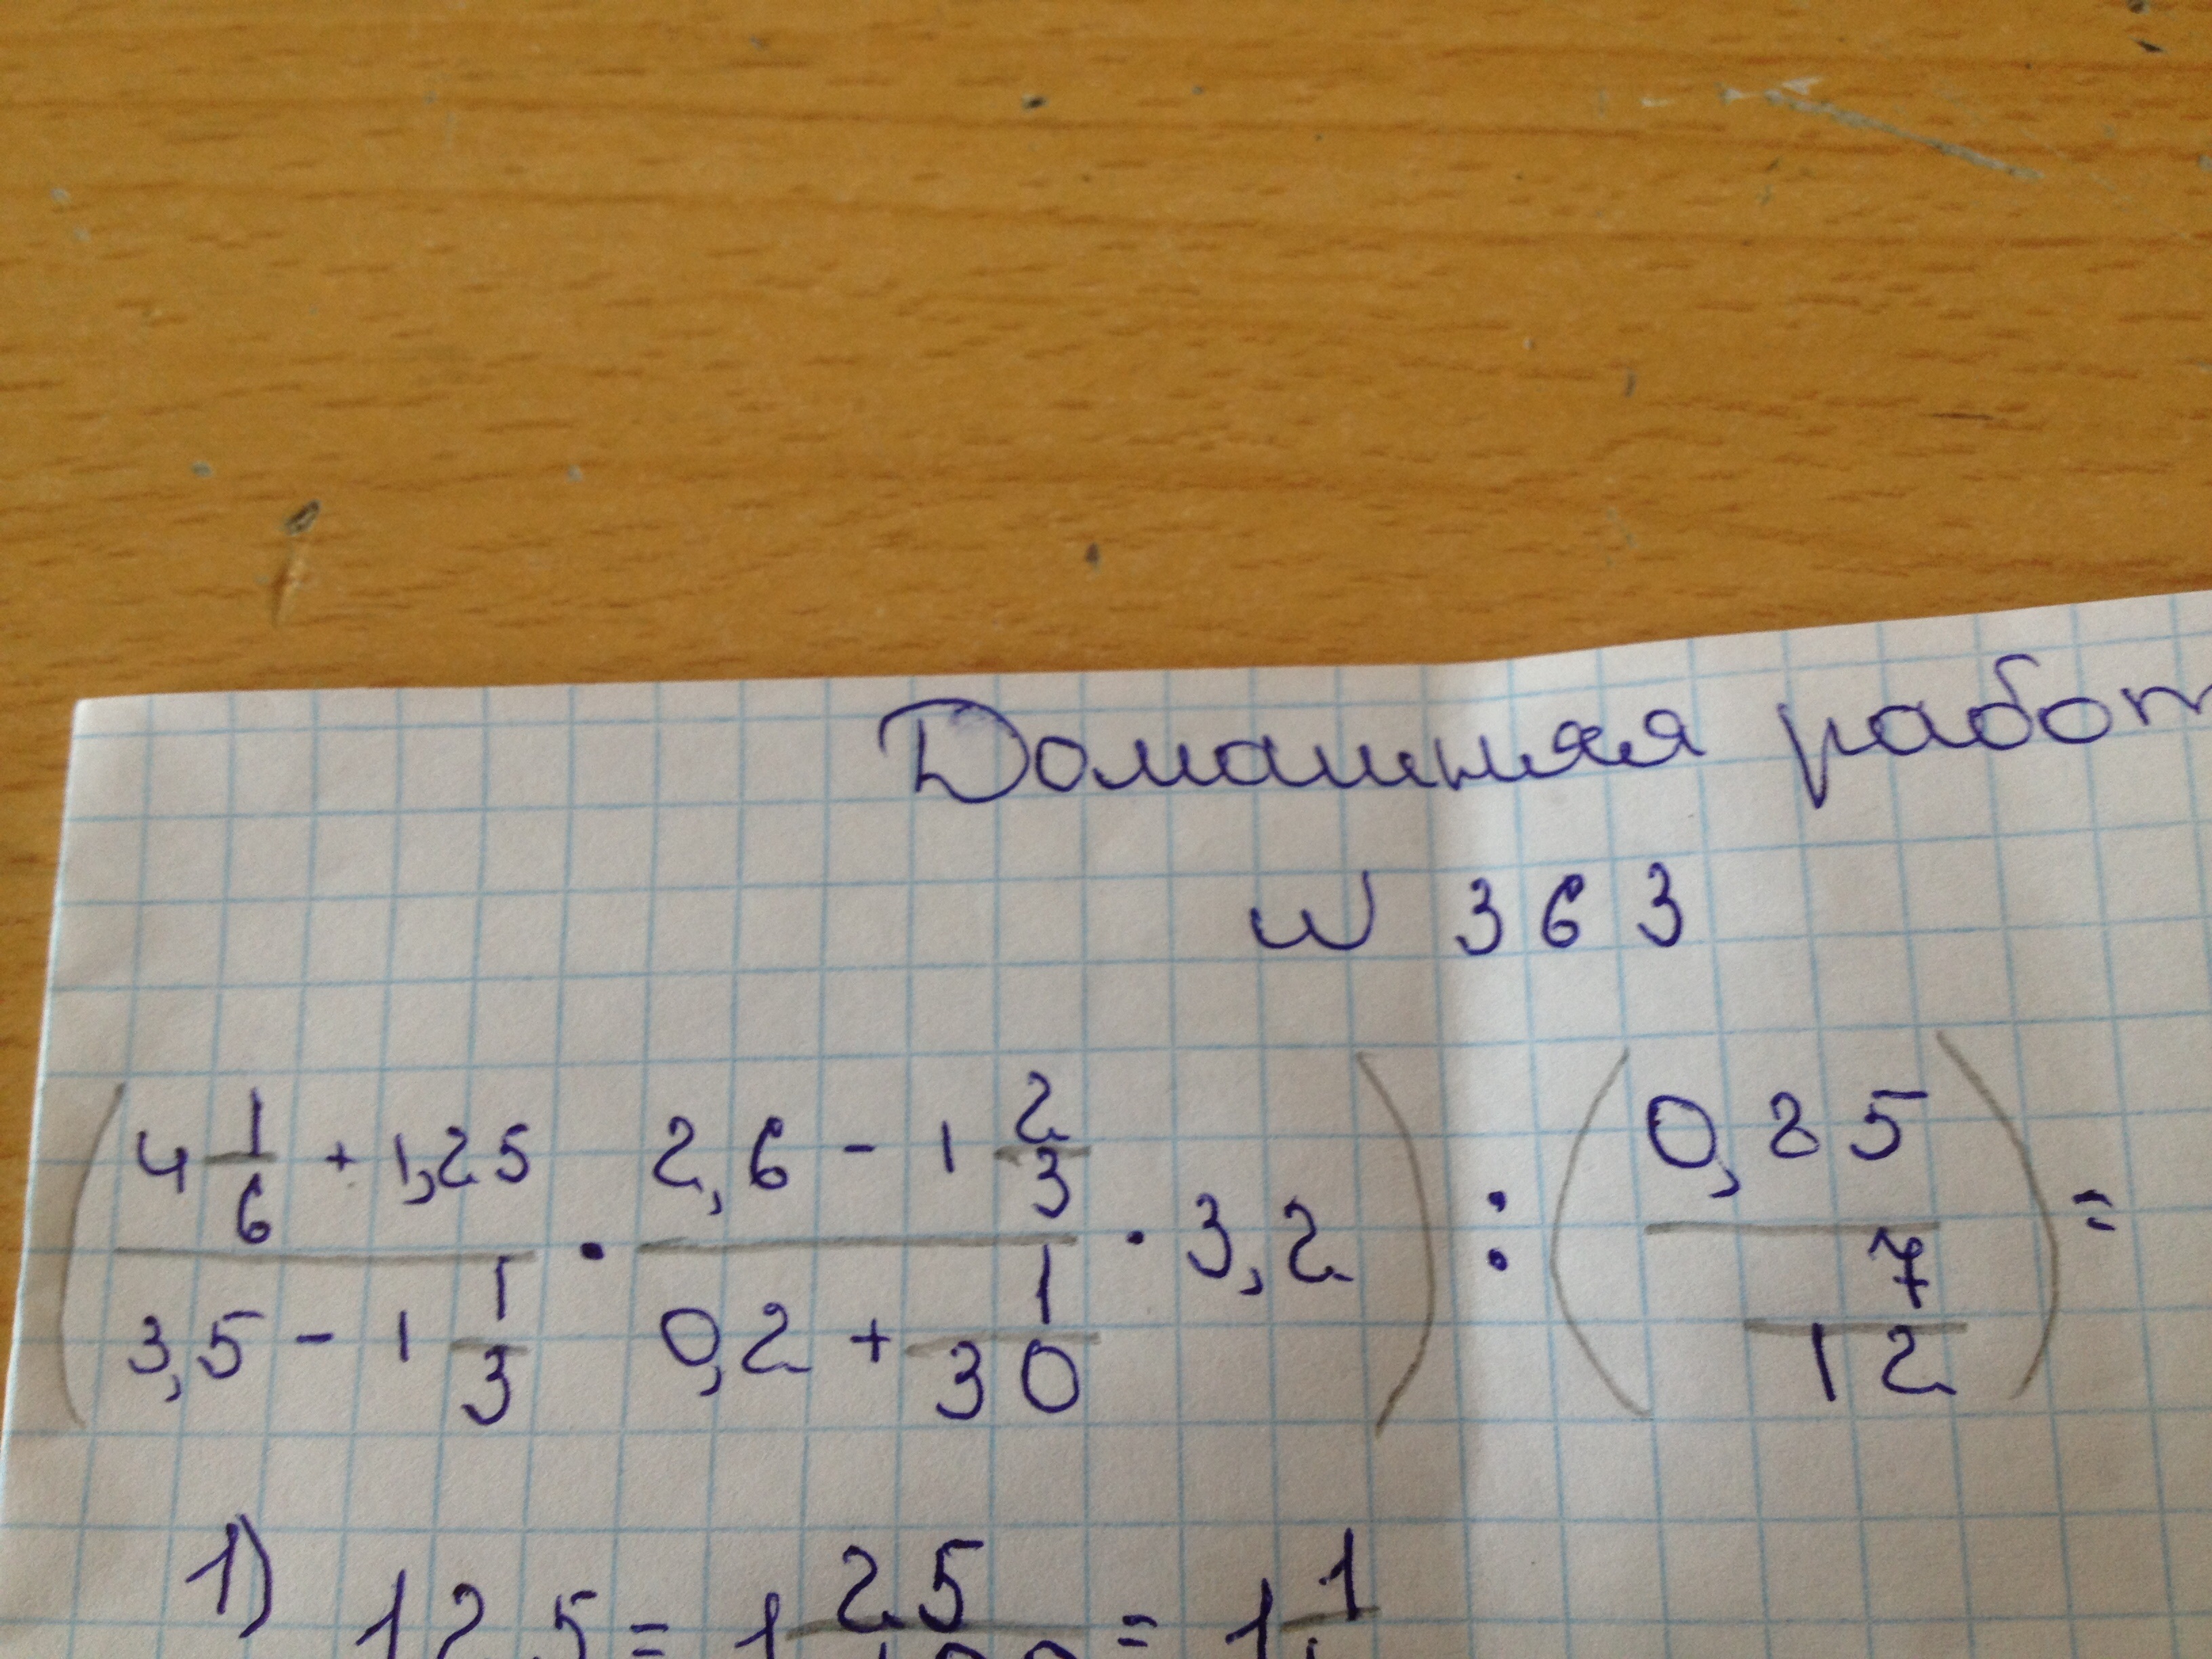 Домашняя работ
N 363
(4 1/6 + 1,25 / 3,5 - 1 1/3 · 2,6 - 1 2/3 / 0,2 + 1/30 · 3,2) : (0,25 / 7/12) =
1) 1,25 = 1 25/100 = 1 1/4